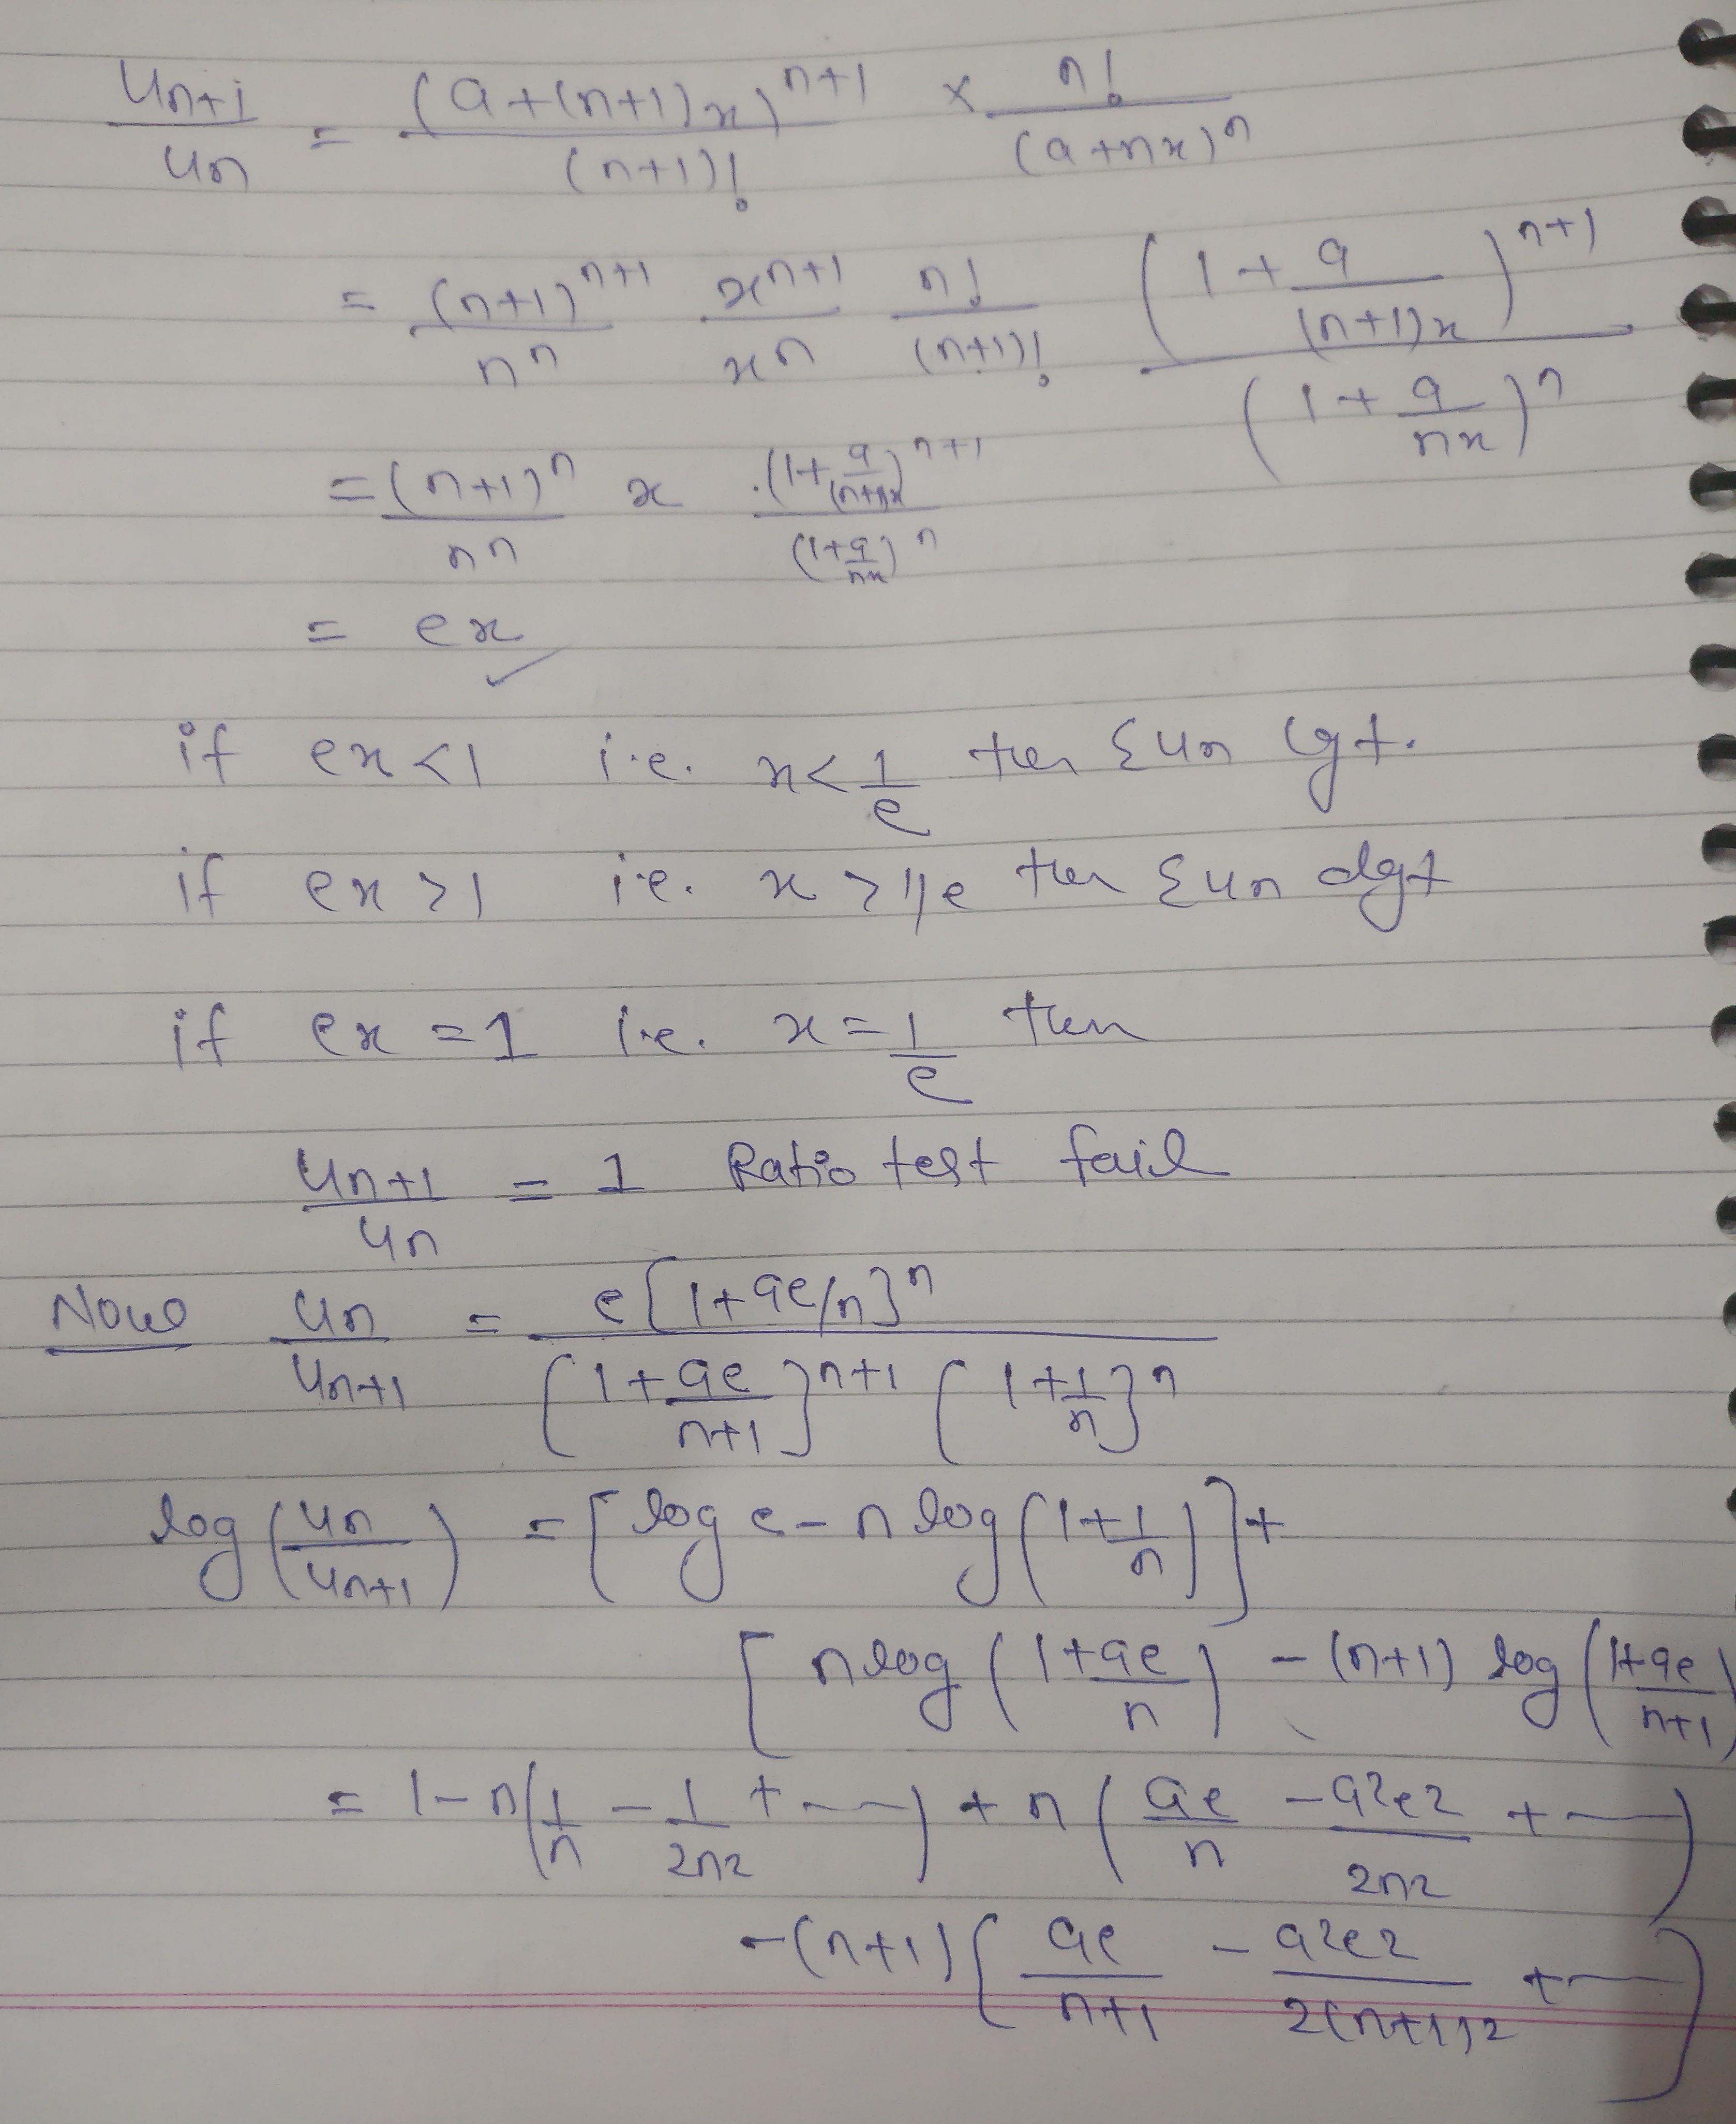 u_{n+1}/u_n = (a+(n+1)x)^{n+1}/(n+1)! × n!/(a+nx)^n
= (n+1)^{n+1}/n^n x^{n+1}/x^n n!/(n+1)! (1+a/(n+1)x)^{n+1}/(1+a/nx)^n
= (n+1)^n/n^n x . (1+a/(n+1)x)^{n+1}/(1+a/nx)^n
= ex ✓
if ex<1 i.e. x<1/e then Σun cgt.
if ex>1 i.e. x>1/e then Σun dgt
if ex=1 i.e. x=1/e then
u_{n+1}/u_n = 1 Ratio test fail
Now u_n/u_{n+1} = e[1+ae/n]^n/[1+ae/n+1]^{n+1} [1+1/n]^n
log(u_n/u_{n+1}) = [log e - n log(1+1/n)] +
[n log(1+ae/n) - (n+1) log(1+ae/n+1)
= 1-n(1/n - 1/2n2 + ---) + n(ae/n - a2e2/2n2 + ---)
-(n+1)[ae/n+1 - a2e2/2(n+1)2 + ---]